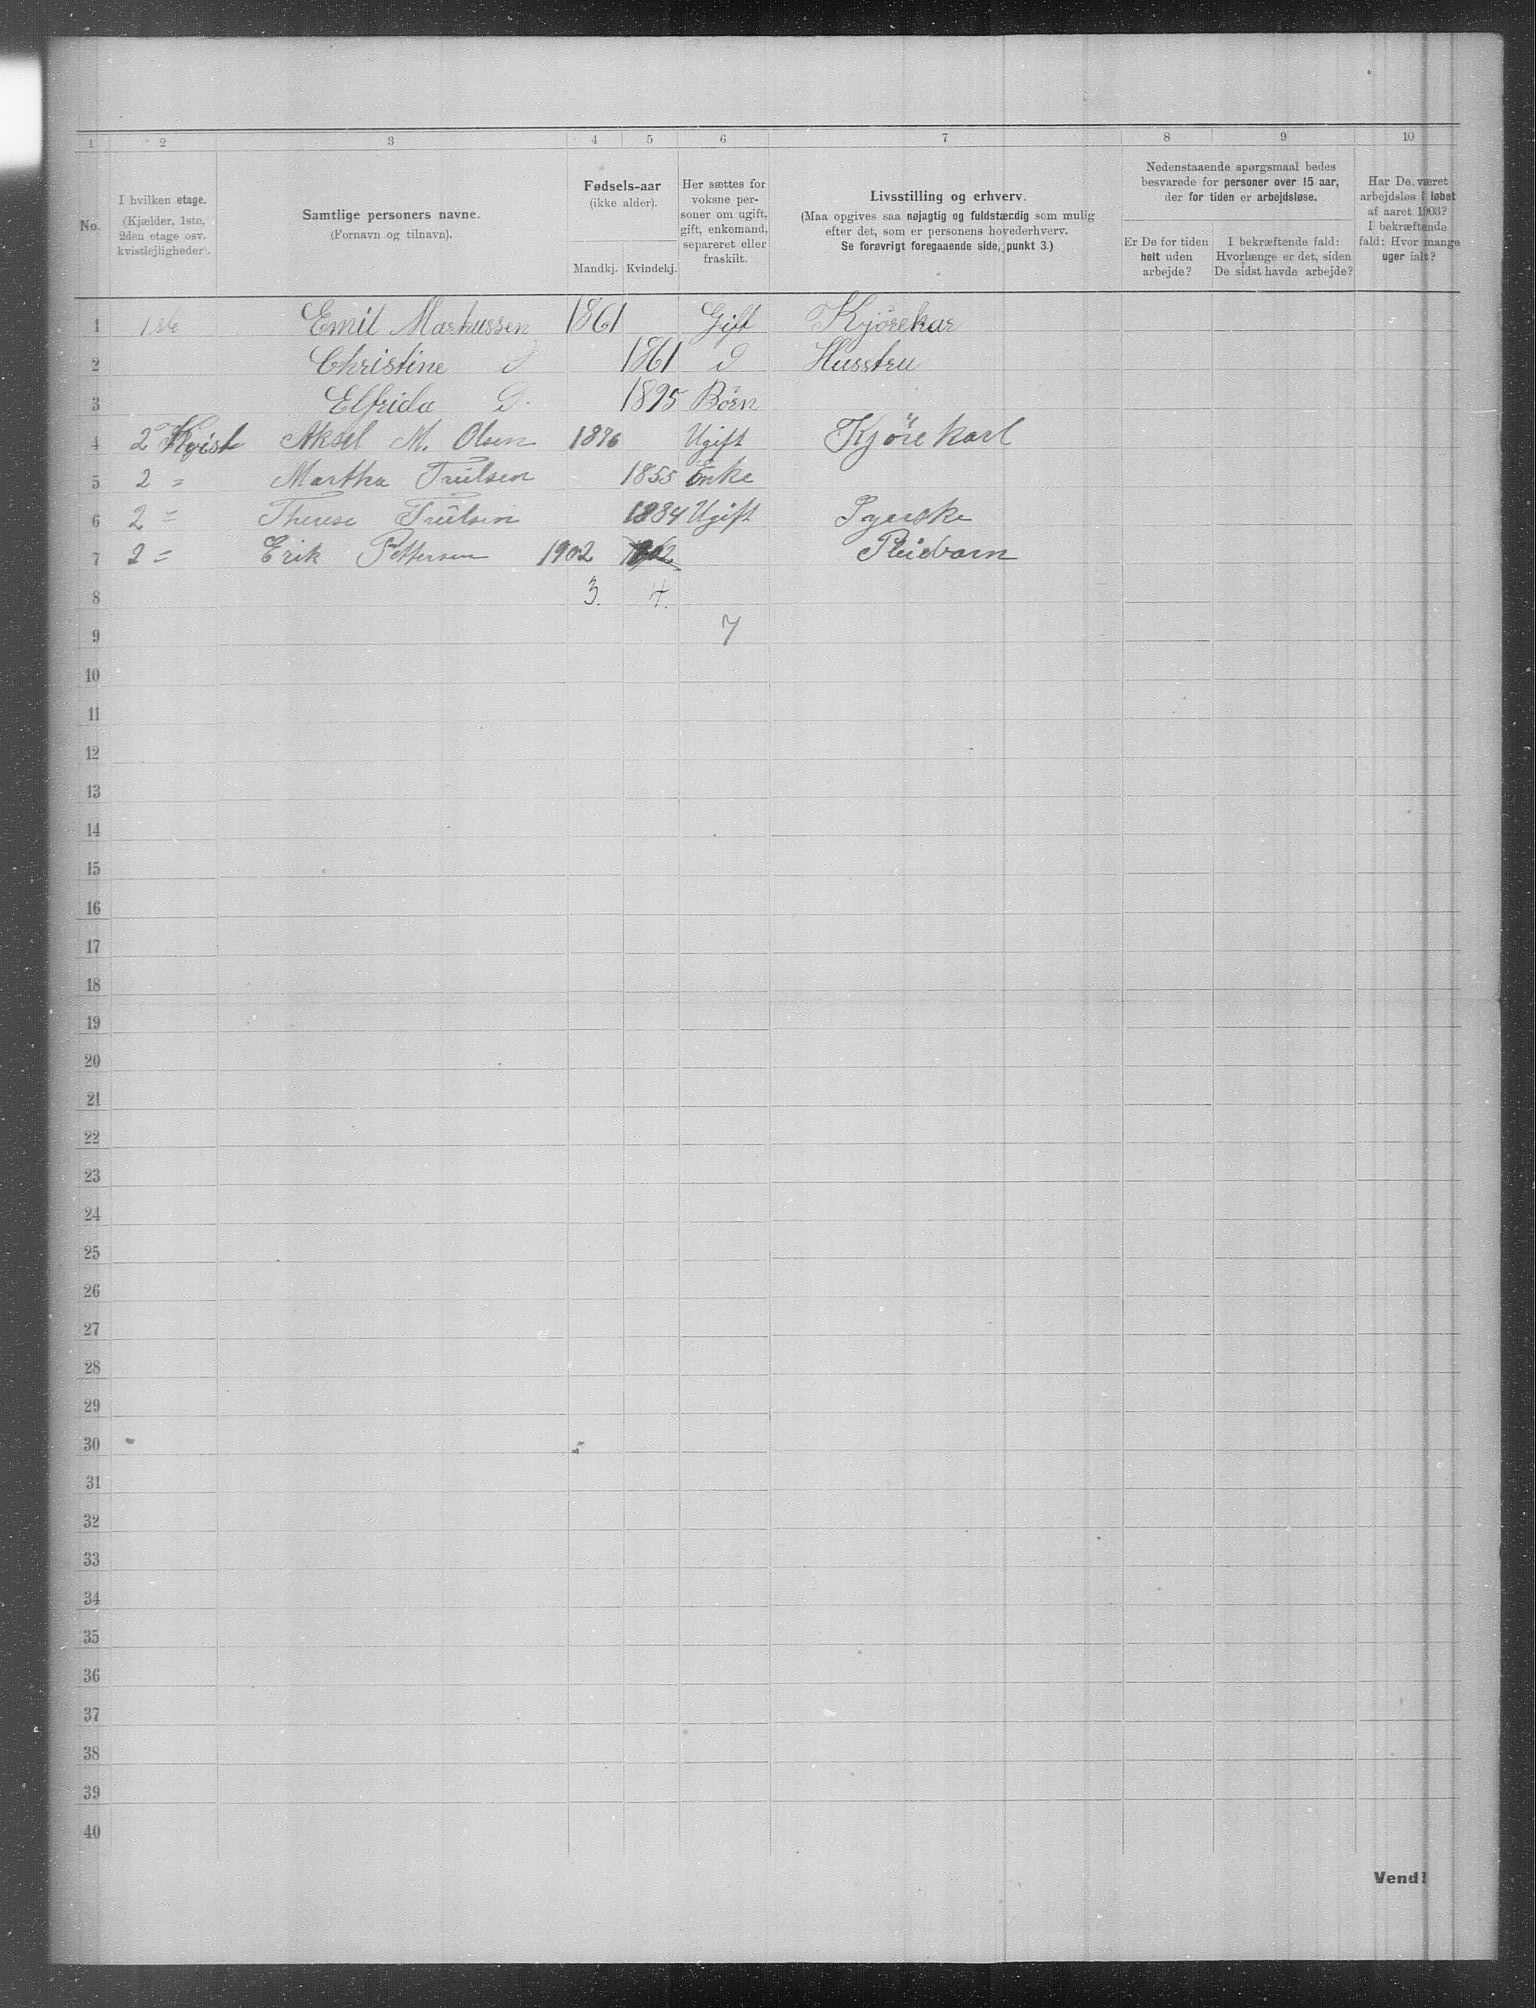 1 2 3 4 5 6 7 8 9 10
No.
I hvilken etage.
(Kjælder, 1ste,
2den etage osv.
kvistlejligheder).
Samtlige personers navne.
(Fornavn og tilnavn).
Fødsels-aar
(ikke alder).
Mandkj. Kvindekj.
Her sættes for
voksne per-
soner om ugift,
gift, enkemand,
separeret eller
fraskilt.
Livsstilling og erhverv.
(Maa opgives saa nøjagtig og fuldstændig som mulig
efter det, som er personens hovederhverv.
Se forøvrigt foregaaende side, punkt 3.)
Nedenstaaende spørgsmaal bedes
besvarede for personer over 15 aar,
der for tiden er arbejdsløse.
Er De for tiden
helt uden
arbejde?
I bekræftende fald:
Hvorlænge er det, siden
De sidst havde arbejde?
Har De været
arbejdsløs i løbet
af aaret 1903?
I bekræftende
fald: Hvor mange
uger ialt?
1 1ste Emil Markussen 1861 Gift Kjørekar
2 Christine D 1861 D Husstru
3 Elfrida D. 1895 Børn
4 2 Kvist Aksel M. Olsen 1876 Ugift Kjørekarl
5 2 = Martha Trulsen 1855 Enke
6 2 = Therese Trulsen 1884 Ugift Syerske
7 2 = Erik Pettersen 1902 1902 Pleiebarn
8 3. 4.
9 7
10
11
12
13
14
15
16
17
18
19
20
21
22
23
24
25
26
27
28
29
30
31
32
33
34
35
36
37
38
39
40
Vend!